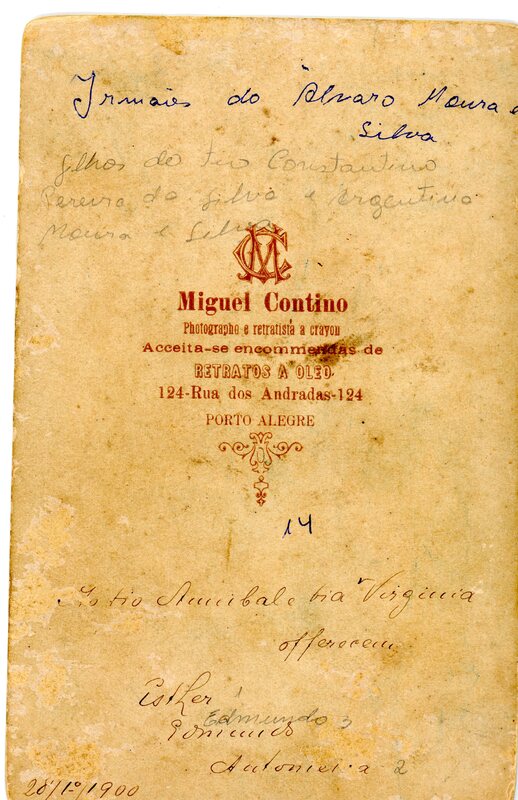 Irmãos do Alvaro Moura e
Silva
filhos do tio Constantino
Pereira da Silva e Argentina
Moura e Silva
MC
Miguel Contino
Photographo e retratista a crayon
Acceita-se encommendas de
RETRATOS A OLEO
124-Rua dos Andradas-124
PORTO ALEGRE
14
Ao tio Annibal e tia Virginia
offerecem
Esther 1
Edmundo 3
Edmundo
Antonieta 2
20/1º/1900